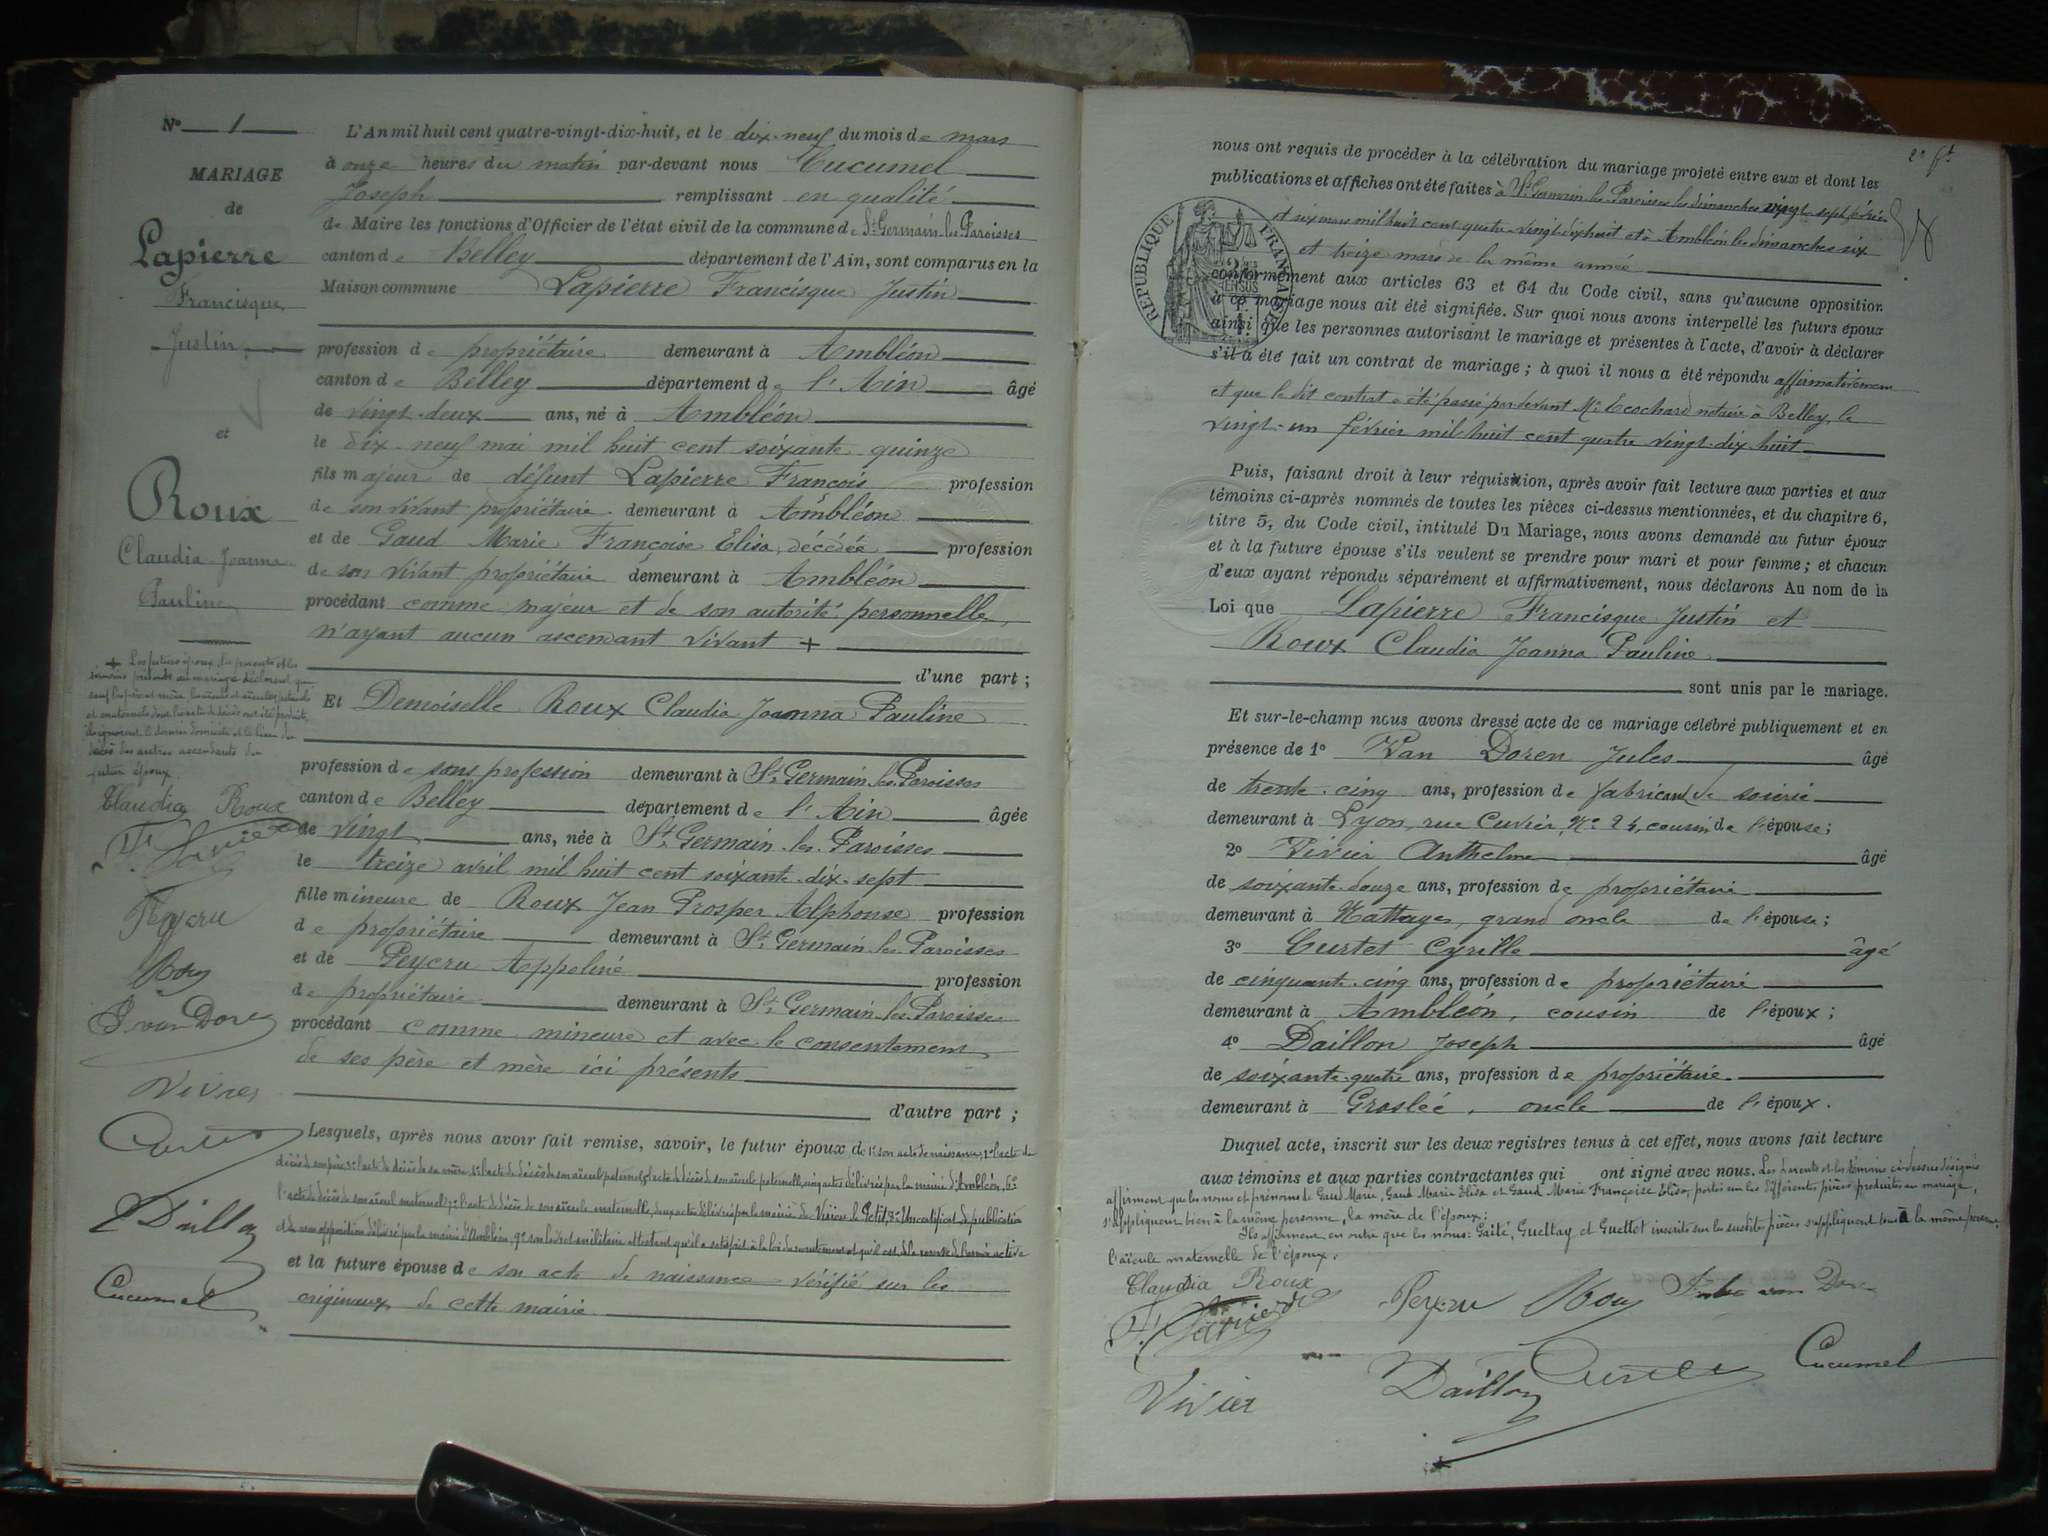 N° 1
MARIAGE
de
Lapierre
Francisque
Justin
et
Roux
Claudia Joanna
Pauline
+ Les futurs époux, les parents et les
témoins présents au mariage déclarent que
et maternels dont l'acte de décès ont été produits,
ils ignorent le dernier domicile et le lieu du
décès des autres ascendants du
futur époux.
Claudia Roux
Peycru
Roux
J. van Doren
Vivier
Curtet
Daillon
Cucumel
L'An mil huit cent quatre-vingt-dix-huit, et le dix-neuf du mois de mars
à onze heures du matin par-devant nous Cucumel
Joseph remplissant en qualité
de Maire les fonctions d'Officier de l'état civil de la commune de St Germain les Paroisses
canton de Belley département de l'Ain, sont comparus en la
Maison commune Lapierre Francisque Justin
profession de propriétaire demeurant à Ambléon
canton de Belley département de l'Ain âgé
de vingt-deux ans, né à Ambléon
le dix-neuf mai mil huit cent soixante-quinze
fils majeur de défunt Lapierre François profession
de son vivant propriétaire demeurant à Ambléon
et de Gaud Marie Françoise Elisa, décédée profession
de son vivant propriétaire demeurant à Ambléon
procédant comme majeur et de son autorité personnelle,
n'ayant aucun ascendant vivant +
d'une part ;
Et Demoiselle Roux Claudia Joanna Pauline
profession de sans profession demeurant à St Germain les Paroisses
canton de Belley département de l'Ain âgée
de vingt ans, née à St Germain-les-Paroisses
le treize avril mil huit cent soixante-dix-sept
fille mineure de Roux Jean Prosper Alphonse profession
de propriétaire demeurant à St Germain-les-Paroisses
et de Peycru Appoliné profession
de propriétaire demeurant à St Germain-les-Paroisses
procédant comme mineure et avec le consentement
de ses père et mère ici présents
d'autre part ;
Lesquels, après nous avoir fait remise, savoir, le futur époux de 1° son acte de naissance; 2° l'acte de
décès de son père; 3° l'acte de décès de sa mère; 4° l'acte de décès de son aïeul paternel; 5° acte de décès de son aïeule paternelle, cinq actes délivrés par la mairie d'Ambléon; 6°
l'acte de décès de son aïeul maternel; 7° l'acte de décès de son aïeule maternelle, deux actes délivrés par la mairie de Virieu le Petit; 8° Un certificat de publication
et de non opposition délivré par la mairie d'Ambléon; 9° son livret militaire attestant qu'il a satisfait à la loi du recrutement et qu'il est de la réserve de l'armée active
et la future épouse de son acte de naissance vérifié sur les
originaux de cette mairie
nous ont requis de procéder à la célébration du mariage projeté entre eux et dont les
publications et affiches ont été faites à St Germain les Paroisses les dimanches vingt-sept février
et six mars mil huit cent quatre-vingt-dix huit et à Ambléon les dimanches six
et treize mars de la même année
RÉPUBLIQUE FRANÇAISE
conformément aux articles 63 et 64 du Code civil, sans qu'aucune opposition
à ce mariage nous ait été signifiée. Sur quoi nous avons interpellé les futurs époux
ainsi que les personnes autorisant le mariage et présentes à l'acte, d'avoir à déclarer
s'il a été fait un contrat de mariage ; à quoi il nous a été répondu affirmativement
et que le dit contrat a été passé par devant Me Ecochard notaire à Belley, le
vingt-un février mil huit cent quatre vingt-dix huit
Puis, faisant droit à leur réquisition, après avoir fait lecture aux parties et aux
témoins ci-après nommés de toutes les pièces ci-dessus mentionnées, et du chapitre 6,
titre 5, du Code civil, intitulé Du Mariage, nous avons demandé au futur époux
et à la future épouse s'ils veulent se prendre pour mari et pour femme ; et chacun
d'eux ayant répondu séparément et affirmativement, nous déclarons Au nom de la
Loi que Lapierre Francisque Justin et
Roux Claudia Joanna Pauline
sont unis par le mariage.
Et sur-le-champ nous avons dressé acte de ce mariage célébré publiquement et en
présence de 1° Van Doren Jules âgé
de trente-cinq ans, profession de fabricant de soierie
demeurant à Lyon, rue Cuvier, N° 24, cousin de l'épouse ;
2° Vivier Anthelme âgé
de soixante-douze ans, profession de propriétaire
demeurant à Nattages, grand oncle de l'épouse ;
3° Curtet Cyrille âgé
de cinquante-cinq ans, profession de propriétaire
demeurant à Ambléon, cousin de l'époux ;
4° Daillon Joseph âgé
de soixante-quatre ans, profession de propriétaire
demeurant à Groslée, oncle de l'époux.
Duquel acte, inscrit sur les deux registres tenus à cet effet, nous avons fait lecture
aux témoins et aux parties contractantes qui ont signé avec nous. Les parents et les témoins ci-dessus désignés
affirment que les noms et prénoms de Gaud Marie, Gaud Marie Elisa et Gaud Marie Françoise Elisa, portés sur les différentes pièces produites au mariage,
s'appliquent bien à la même personne, la mère de l'époux;
Ils affirment en outre que les noms: Gaité, Guettay et Guettet inscrits sur les susdites pièces s'appliquent tous à la même personne
l'aïeule maternelle de l'époux.
Claudia Roux
Peycru
Roux
Jules van Doren
Vivier
Daillon
Curtet
Cucumel